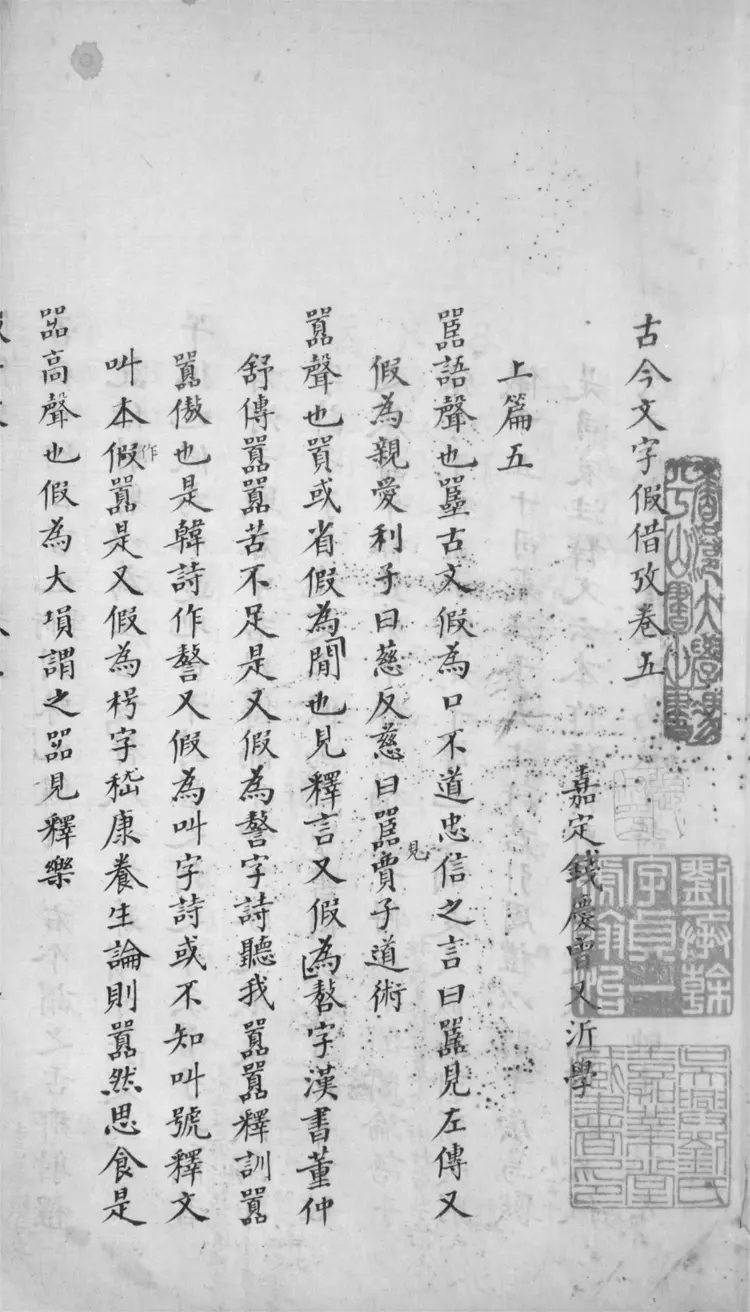 古今文字假借攷卷五
嘉定錢慶曾又沂學
上篇五
嚚語聲也𡅽古文假為口不道忠信之言曰嚚見左傳又
假為親愛利子曰慈反慈曰嚚見賈子道術
嚻聲也貿或省假為閒也見釋言又假為嗸字漢書董仲
舒傳嚻嚻苦不足是又假為謷字詩聽我嚻嚻釋訓嚻
嚻傲也是韓詩作謷又假為叫字詩或不知叫號釋文
叫本作假嚻是又假為枵字嵇康養生論則嚻然思食是
㗊高聲也假為大塤謂之㗊見釋樂
劉承幹
字貞一
號翰怡
吳興劉氏
嘉業堂
藏書印